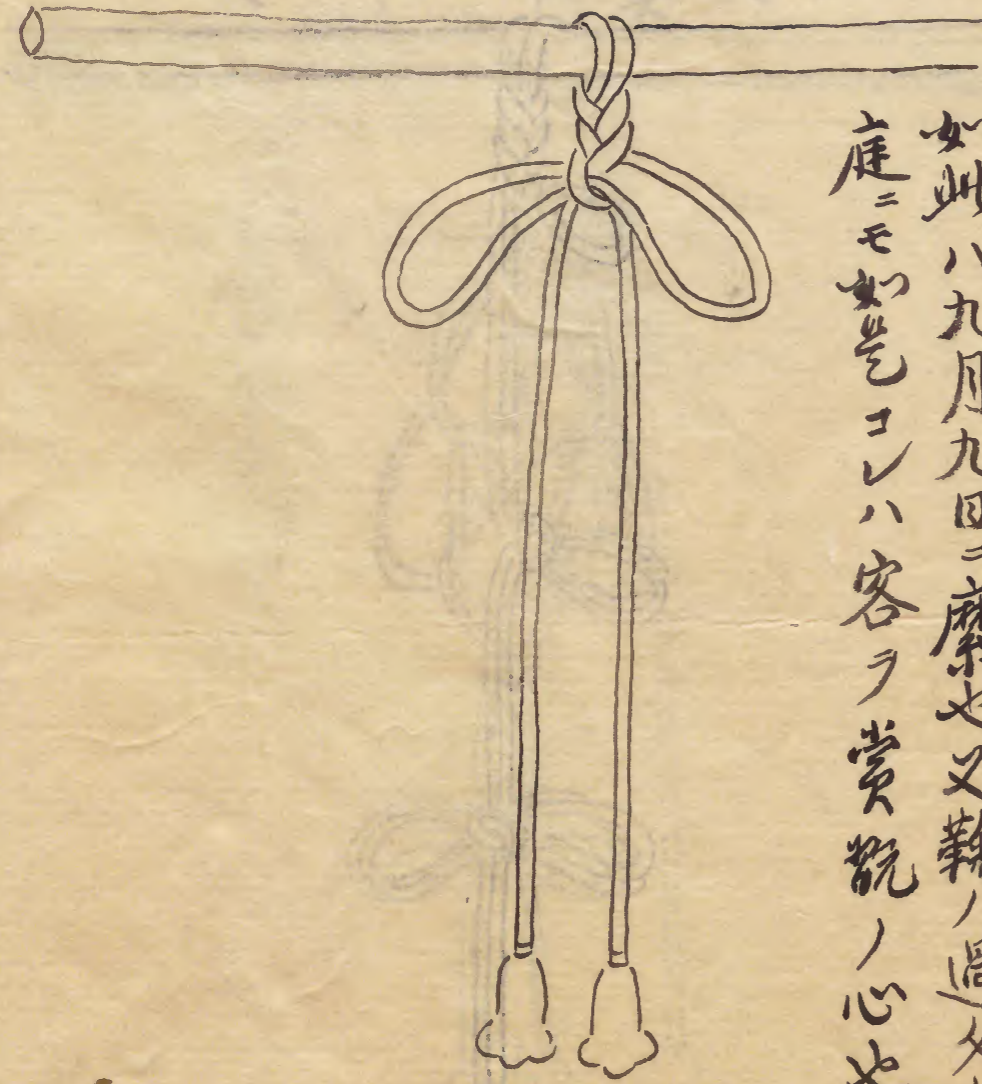 如此ハ九月九日ニ縻也又鞠ノ過タ
庭ニモ如是コレハ客ヲ賞翫ノ心也